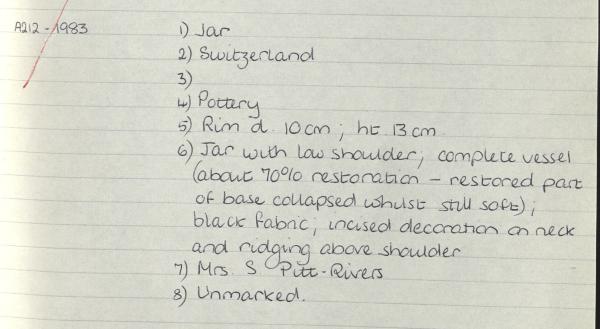 A212-1983 1) Jar
2) Switzerland
3)
4) Pottery
5) Rim d. 10cm; ht. 13cm
6) Jar with low shoulder; complete vessel
(about 70% restoration - restored part
of base collapsed whilst still soft);
black fabric; incised decoration on neck
and ridging above shoulder
7) Mrs. S Pitt-Rivers
8) Unmarked.